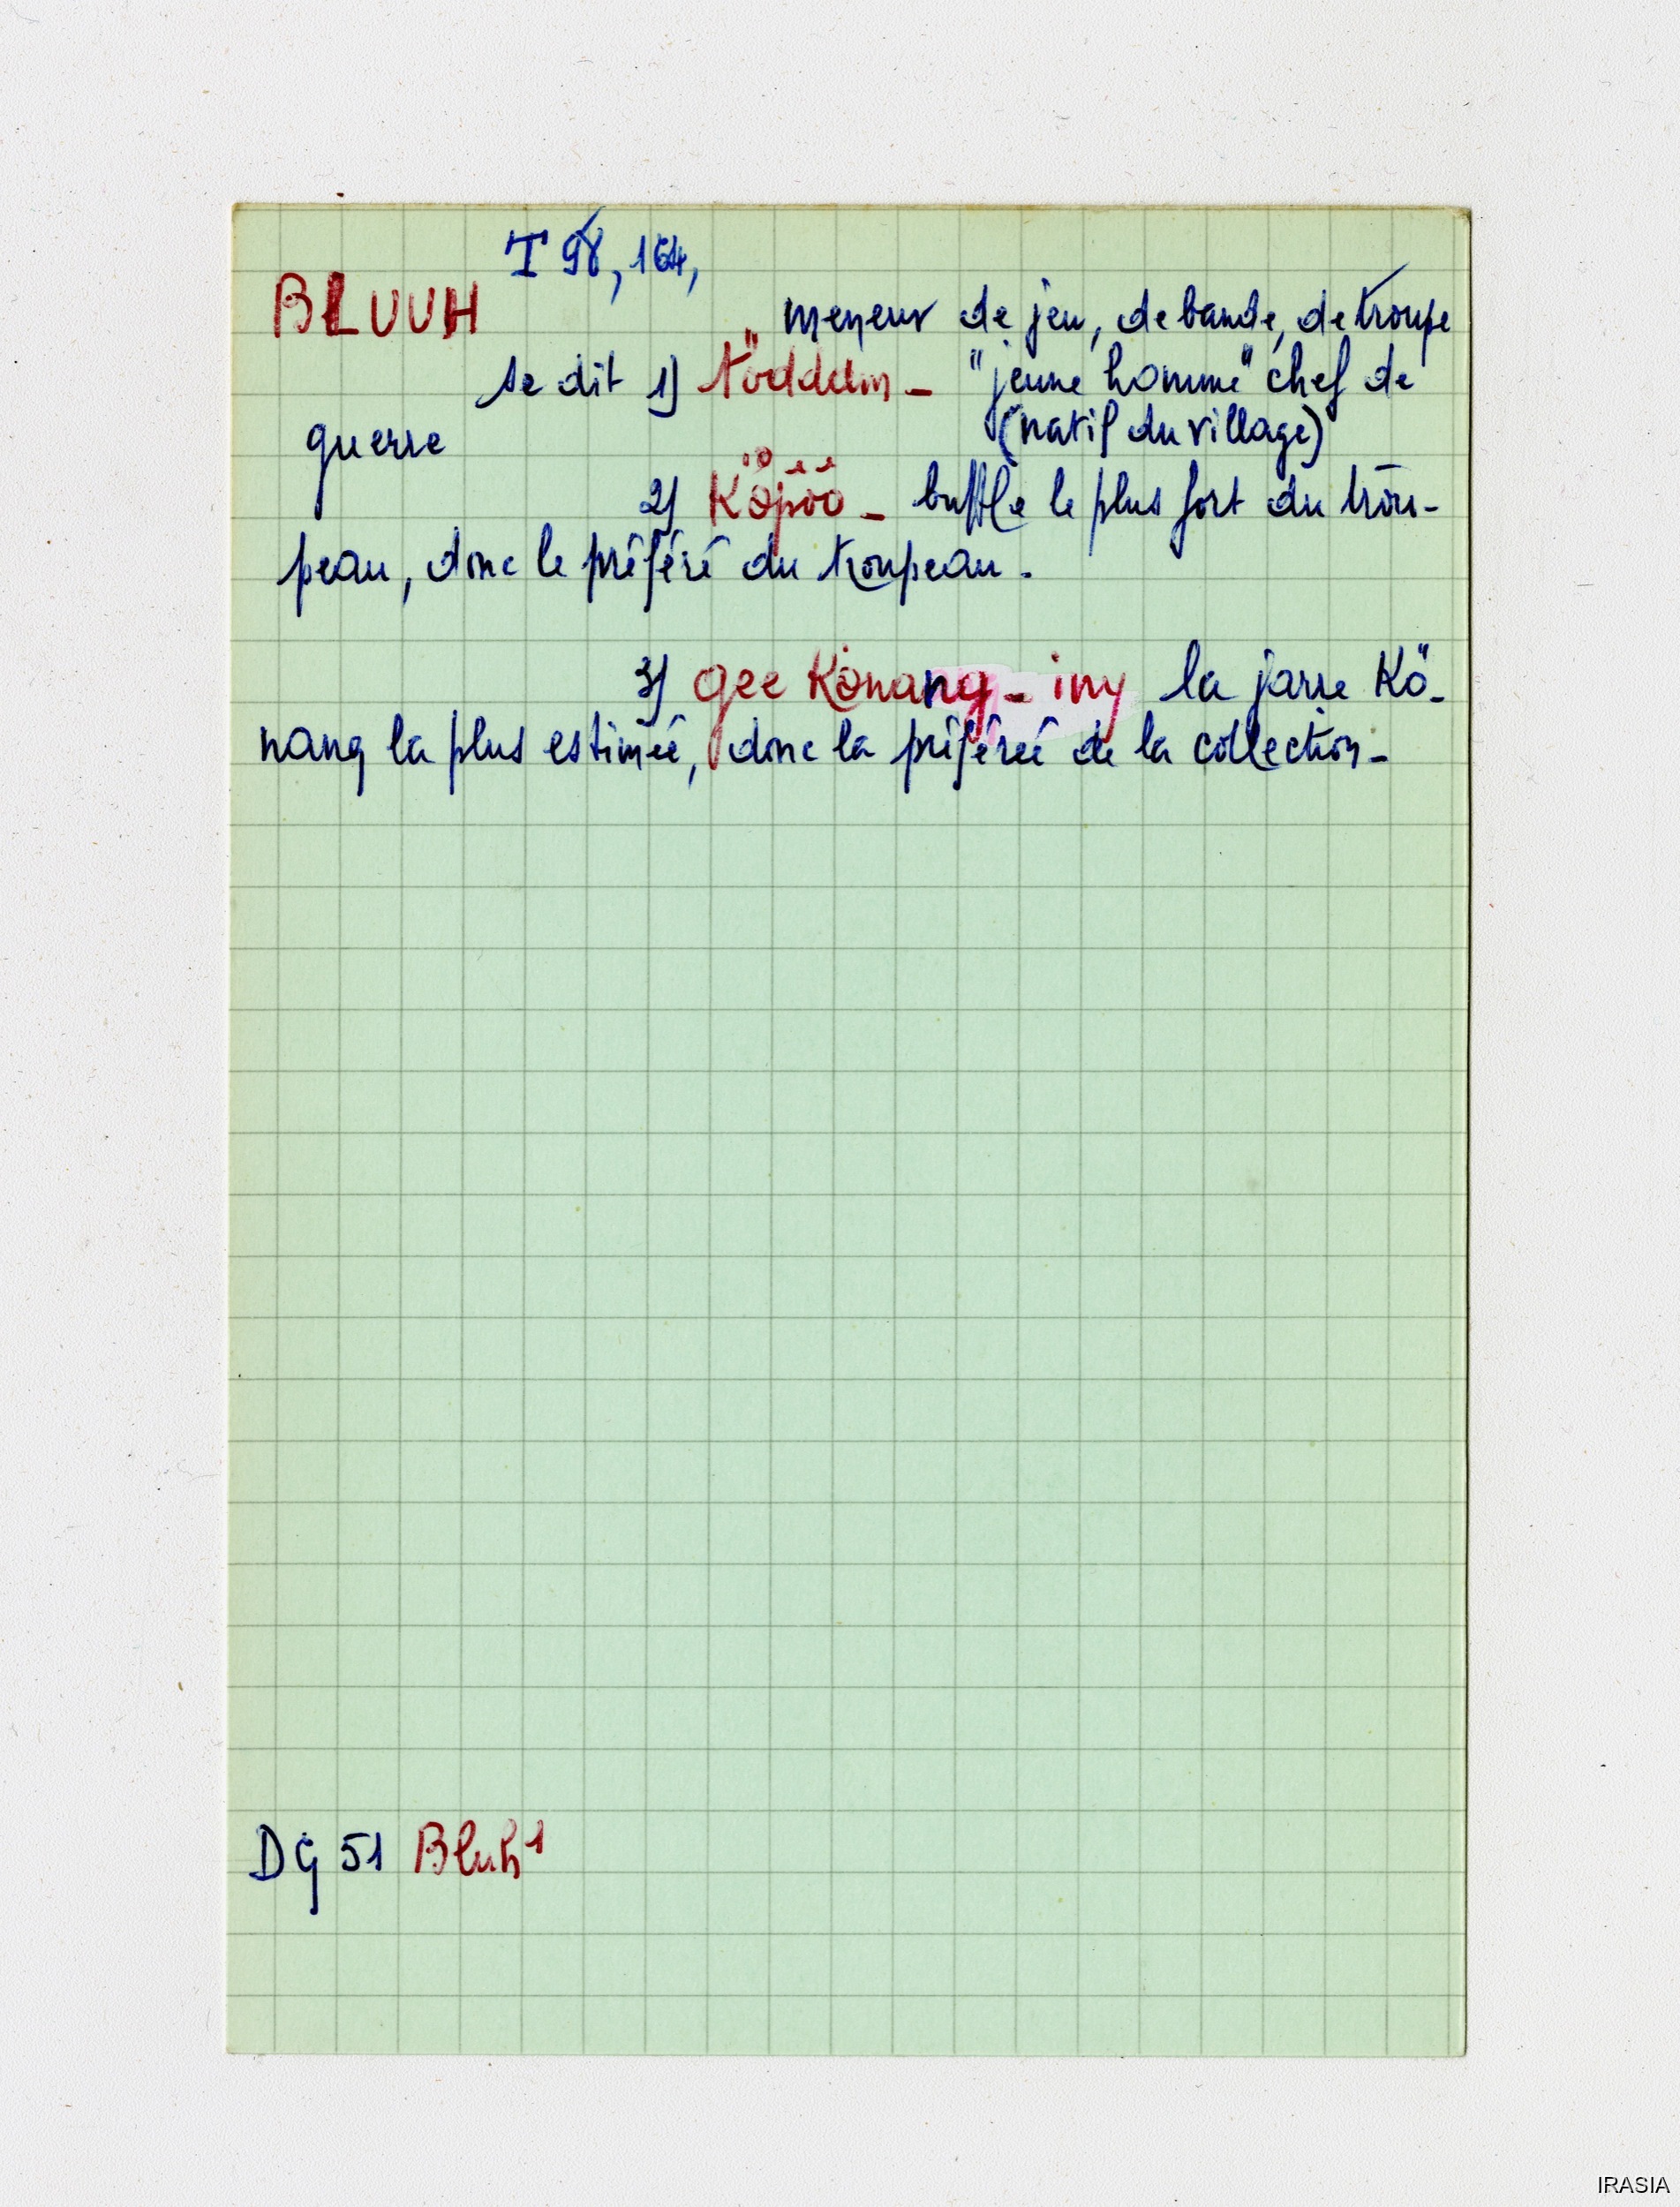 T 98, 164,
BLUUH meneur de jeu, de bande, de troupe
se dit 1) töddam - "jeune homme" chef de
guerre (natif du village)
2) Köpôô - buffle le plus fort du trou-
peau, donc le préféré du troupeau.
3) gee Könang - iny la jarre Kö-
nang la plus estimée, donc la préférée de la collection -
DG 51 Bluh¹
IRASIA